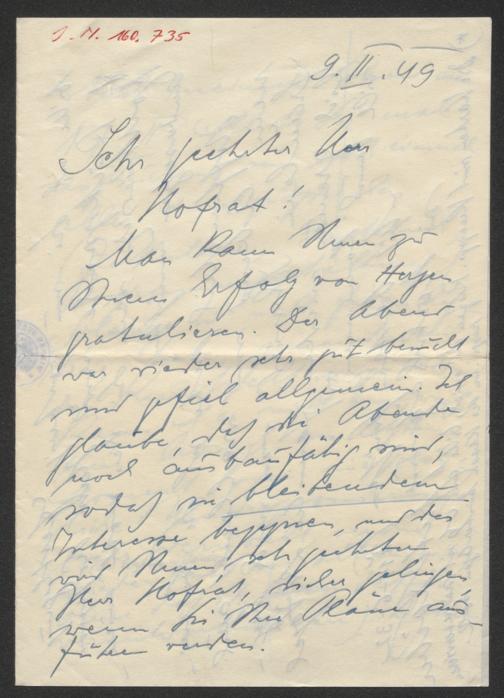 J. N. 160.735
9. II. 49
Sehr geehrter Herr
Hofrat!
Man kann Ihnen zu
Ihrem Erfolg von Herzen
gratulieren. Der Abend
war wieder sehr gut besucht
und gefiel allgemein. Ich
glaube, daß die Abende
noch ausbaufähig sind,
sodaß sie bleibendem
Interesse begegnen, und das
wird Ihnen, sehr geehrter
Herr Hofrat, sicher gelingen,
wenn Sie Ihre Pläne aus-
führen werden.